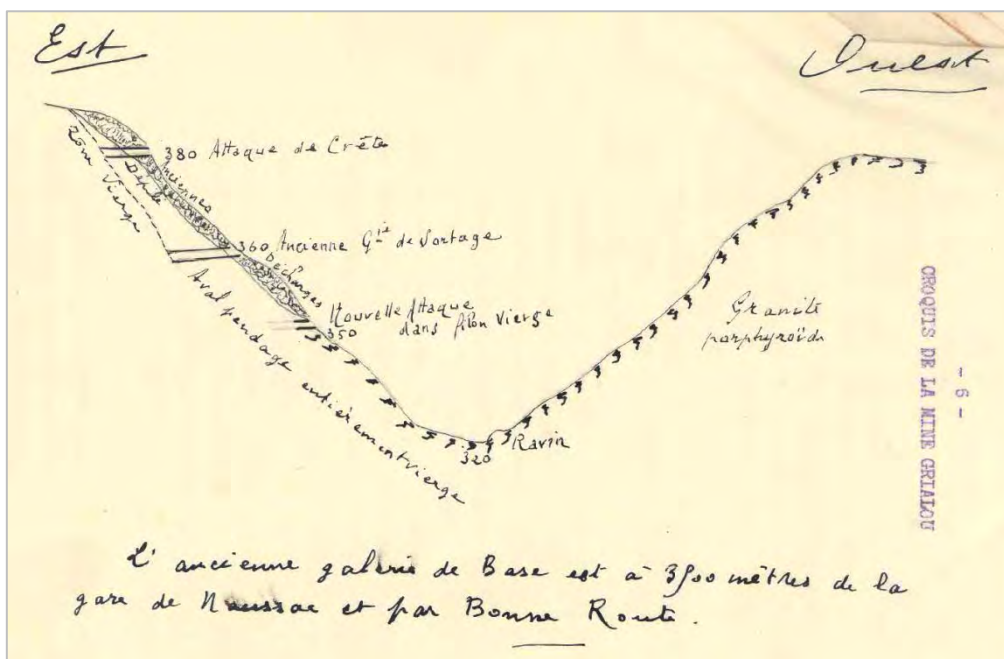 Est
Ouest
380 Attaque de Crête
Zone Vierge
Dépilé
Anciennes
360 Ancienne Gie de Portage
Décharges
Nouvelle Attaque
350 dans filon Vierge
Aval pendage entièrement vierge
Granite
porphyroïde
320
Ravin
- 6 -
CROQUIS DE LA MINE GRIALOU
L'ancienne galerie de Base est à mètres de la
gare de Naussac et par Bonne Route.